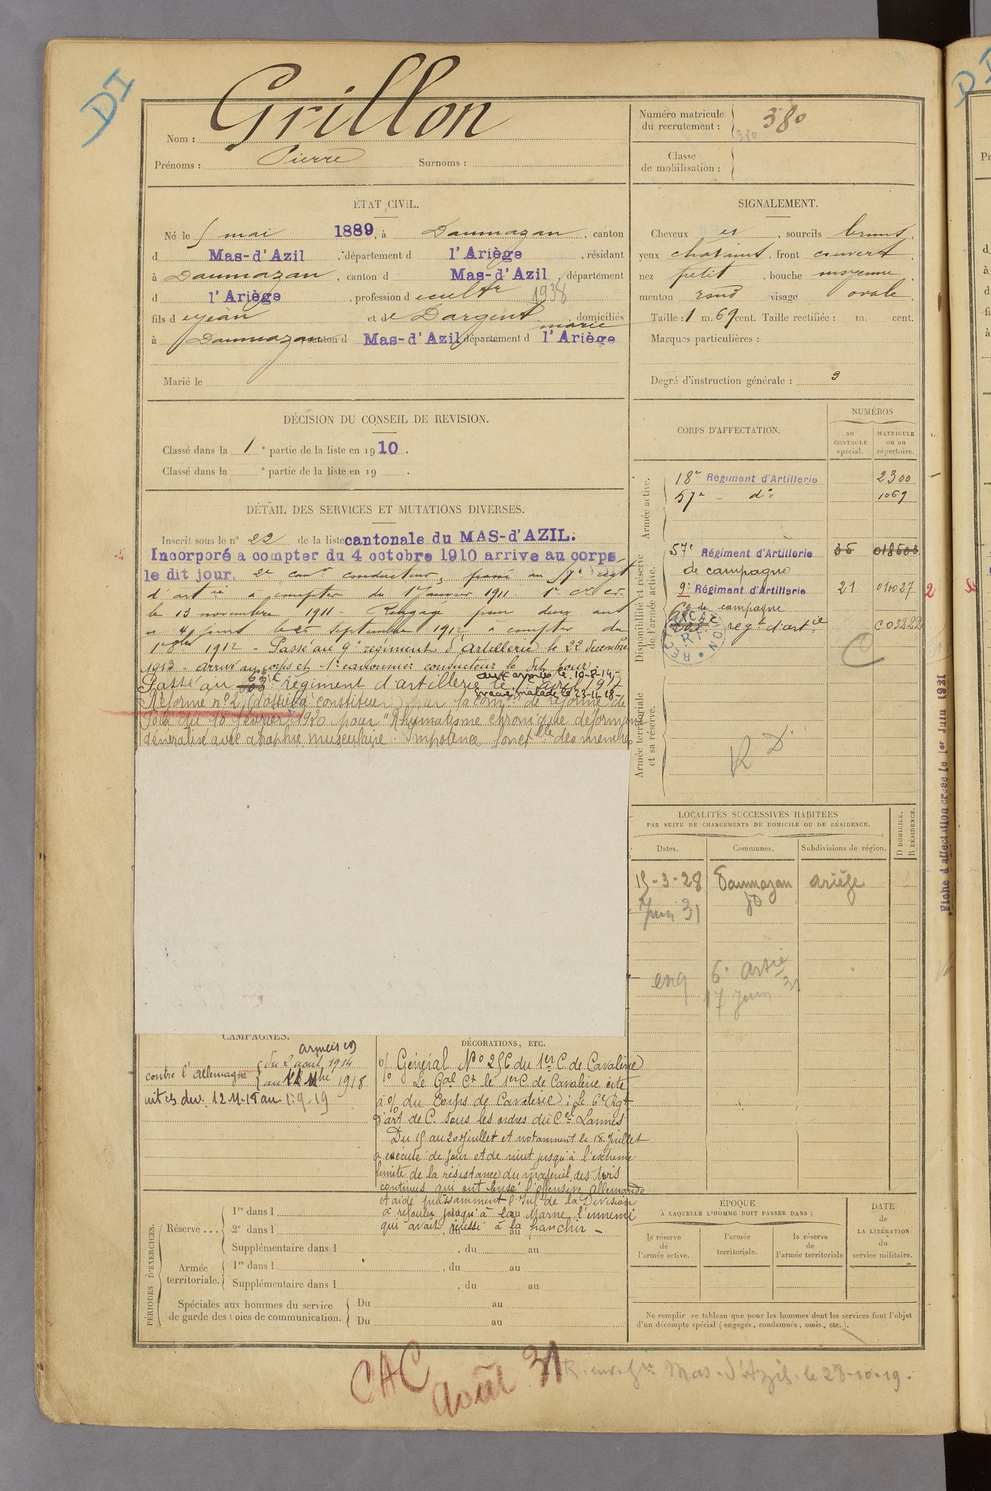 DI
Grillon
Nom :
Prénoms : Pierre Surnoms :
Numéro matricule du recrutement : 380
380
Classe de mobilisation :
ÉTAT CIVIL.
Né le 5 mai 1889, à Daumazan, canton
d Mas-d'Azil, département d l'Ariège, résidant
à Daumazan, canton d Mas-d'Azil, département
d l'Ariège, profession d cult^r 1938
fils d Jean et de Dargent marie domiciliés
à Daumazan canton d Mas-d'Azil département d l'Ariège
Marié le
SIGNALEMENT.
Cheveux et, sourcils bruns,
yeux chatains, front couvert,
nez petit, bouche moyenne
menton rond visage ovale
Taille : 1 m. 69 cent. Taille rectifiée : m. cent.
Marques particulières :
Degré d'instruction générale : 3
DÉCISION DU CONSEIL DE REVISION.
Classé dans la 1^e partie de la liste en 1910.
Classé dans la ^e partie de la liste en 19 .
DÉTAIL DES SERVICES ET MUTATIONS DIVERSES.
Inscrit sous le n° 22 de la liste cantonale du MAS-d'AZIL.
Incorporé a compter du 4 octobre 1910 arrive au corps
le dit jour. 2e can^r conducteur, passé au 57e reg^t
d'art^ie à compter du 1er janvier 1911. 1er c^r c^r
le 13 novembre 1911 - Rengagé pour deux ans
4 jours le 25 septembre 1912 à compter du
1er 8bre 1912 - Passé au 9e régiment d'artillerie le 22 décembre
1913 - Arrivé au corps et 1er canonnier conducteur le dit jour.
Passé au régiment d'artillerie le avril 1917
aux armées le 10-8-14
évacué malade le 23-11-18
Réformé n° 2 par la com^on de réforme de
du 18 février 1920 pour "Rhumatisme chronique déformant
généralisé avec atrophie musculaire. Impotence fonct^elle des membres
CORPS D'AFFECTATION.
NUMÉROS
AU CONTROLE spécial.
MATRICULE OU AU répertoire.
Armée active.
18e Régiment d'Artillerie 2300
57e d° 1069
Disponibilité et réserve de l'armée active.
57e Régiment d'Artillerie 35 018503
de campagne
9e Régiment d'Artillerie 21 01027
de campagne
rég^t d'art^ie
C
Armée territoriale et sa réserve.
R D
LOCALITÉS SUCCESSIVES HABITÉES
PAR SUITE DE CHANGEMENTS DE DOMICILE OU DE RÉSIDENCE.
Dates. Communes. Subdivisions de région.
D DOMICILE. R RÉSIDENCE.
15-3-28 Daumazan Ariège
Juin 31 d°
17 Juin 31
Fiche d'affectation créée le 1er Juin 1921
CAMPAGNES.
contre l'Allemagne armées du 2 août 1914
au 1918
int^es du 12-11-18 au 1-9-19
DÉCORATIONS, ETC.
Général N° 256 du 1er C. de Cavalerie
Le G^al C^t le 1er C. de Cavalerie cite
à l'o/ du Corps de Cavalerie : le 6e Rgt
d'art de C. sous les ordres du C^el Lannes
Du 15 au 20 Juillet et notamment le 18 Juillet
a exécuté de jour et de nuit jusqu'à l'extrême
limite de la résistance du matériel des tirs
continus qui ont brisé l'offensive Allemande
et aidé puissamment l'Inf^ie de la Division
à refouler jusqu'à la Marne l'ennemi
qui avait réussi à la franchir -
PÉRIODES D'EXERCICES.
Réserve... 1re dans l
2e dans l , du au
Supplémentaire dans l , du au
Armée territoriale. 1re dans l , du au
Supplémentaire dans l , du au
Spéciales aux hommes du service de garde des voies de communication. Du au
Du au
ÉPOQUE
À LAQUELLE L'HOMME DOIT PASSER DANS :
la réserve de l'armée active.
l'armée territoriale.
la réserve de l'armée territoriale
DATE de LA LIBÉRATION du service militaire.
Ne remplir ce tableau que pour les hommes dont les services font l'objet
d'un décompte spécial (engagés, condamnés, omis, etc.).
CAC
août 31
Mas-d'Azil le 23-10-19.